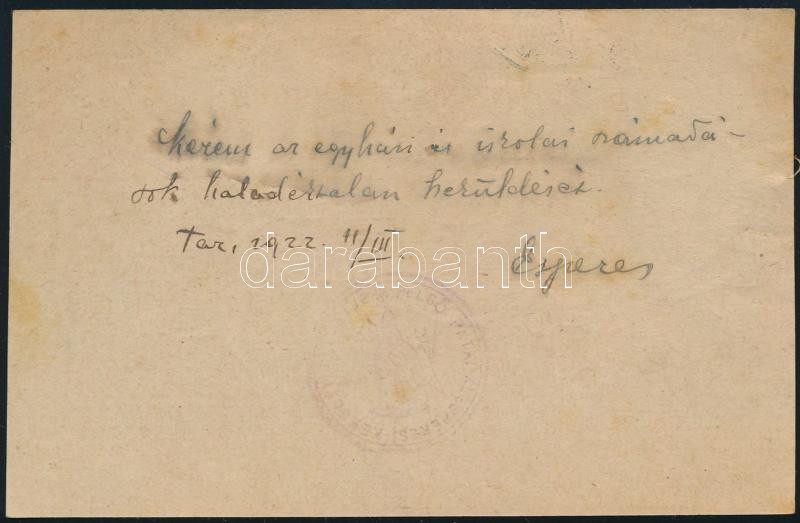 Kérem az egyházi és iskolai számadá-
sok haladéktalan beküldését.
Tar, 1922. 11/III.
Esperes
darabanth
PATAI ESPERESI KER